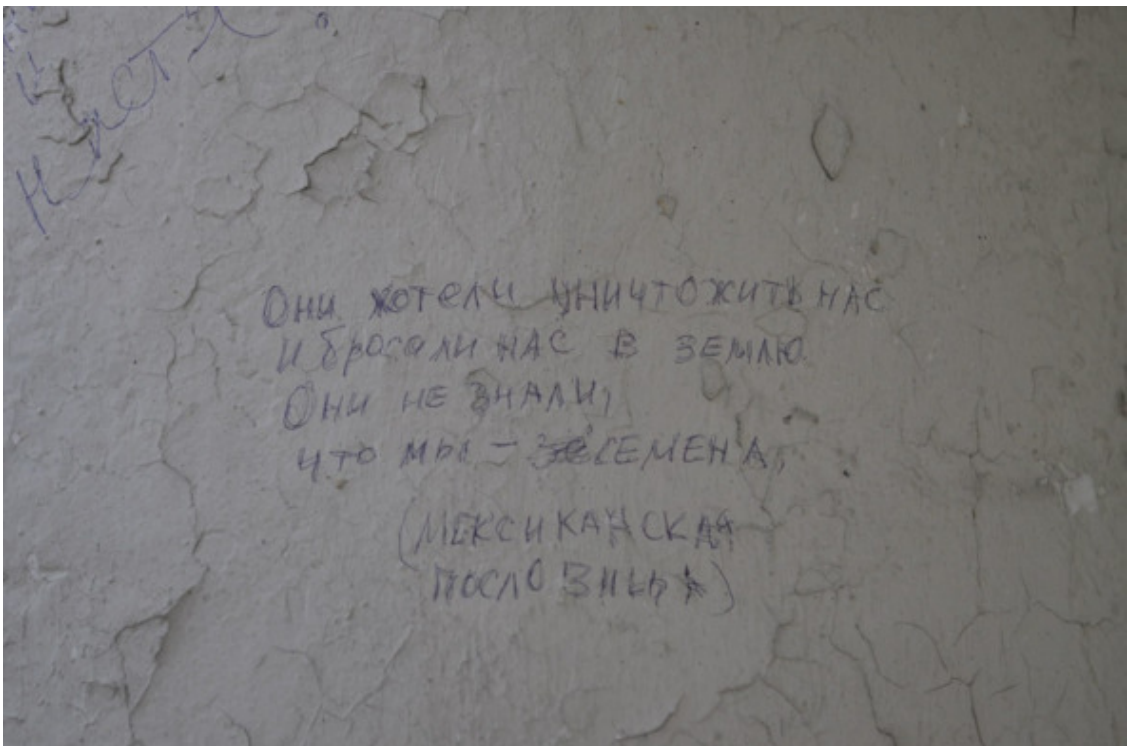 Они хотели уничтожить нас
и бросали нас в землю.
Они не знали,
что мы – семена.
(Мексиканская
пословица)